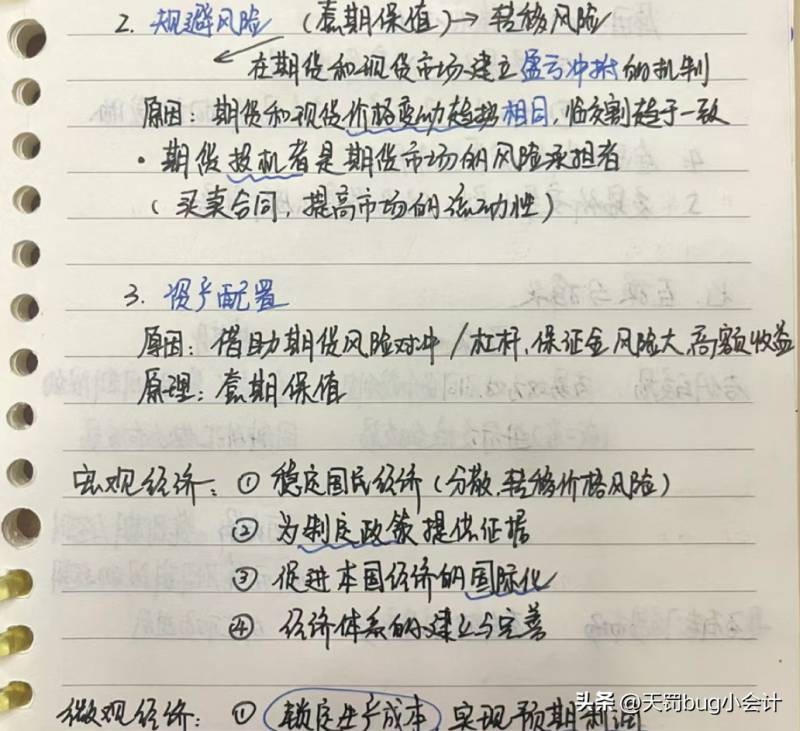 2. 规避风险 (套期保值)→转移风险
在期货和现货市场建立盈亏冲抵的机制
原因：期货和现货价格变动趋势相同，临交割趋于一致
·期货投机者是期货市场的风险承担者
（买卖合同，提高市场的流动性）
3. 资产配置
原因：借助期货风险对冲/杠杆、保证金风险大、高额收益
原理：套期保值
宏观经济：① 稳定国民经济（分散、转移价格风险）
② 为制定政策提供证据
③ 促进本国经济的国际化
④ 经济体系的建立与完善
微观经济：① 锁定生产成本，实现预期利润
头条 @天罚bug小会计